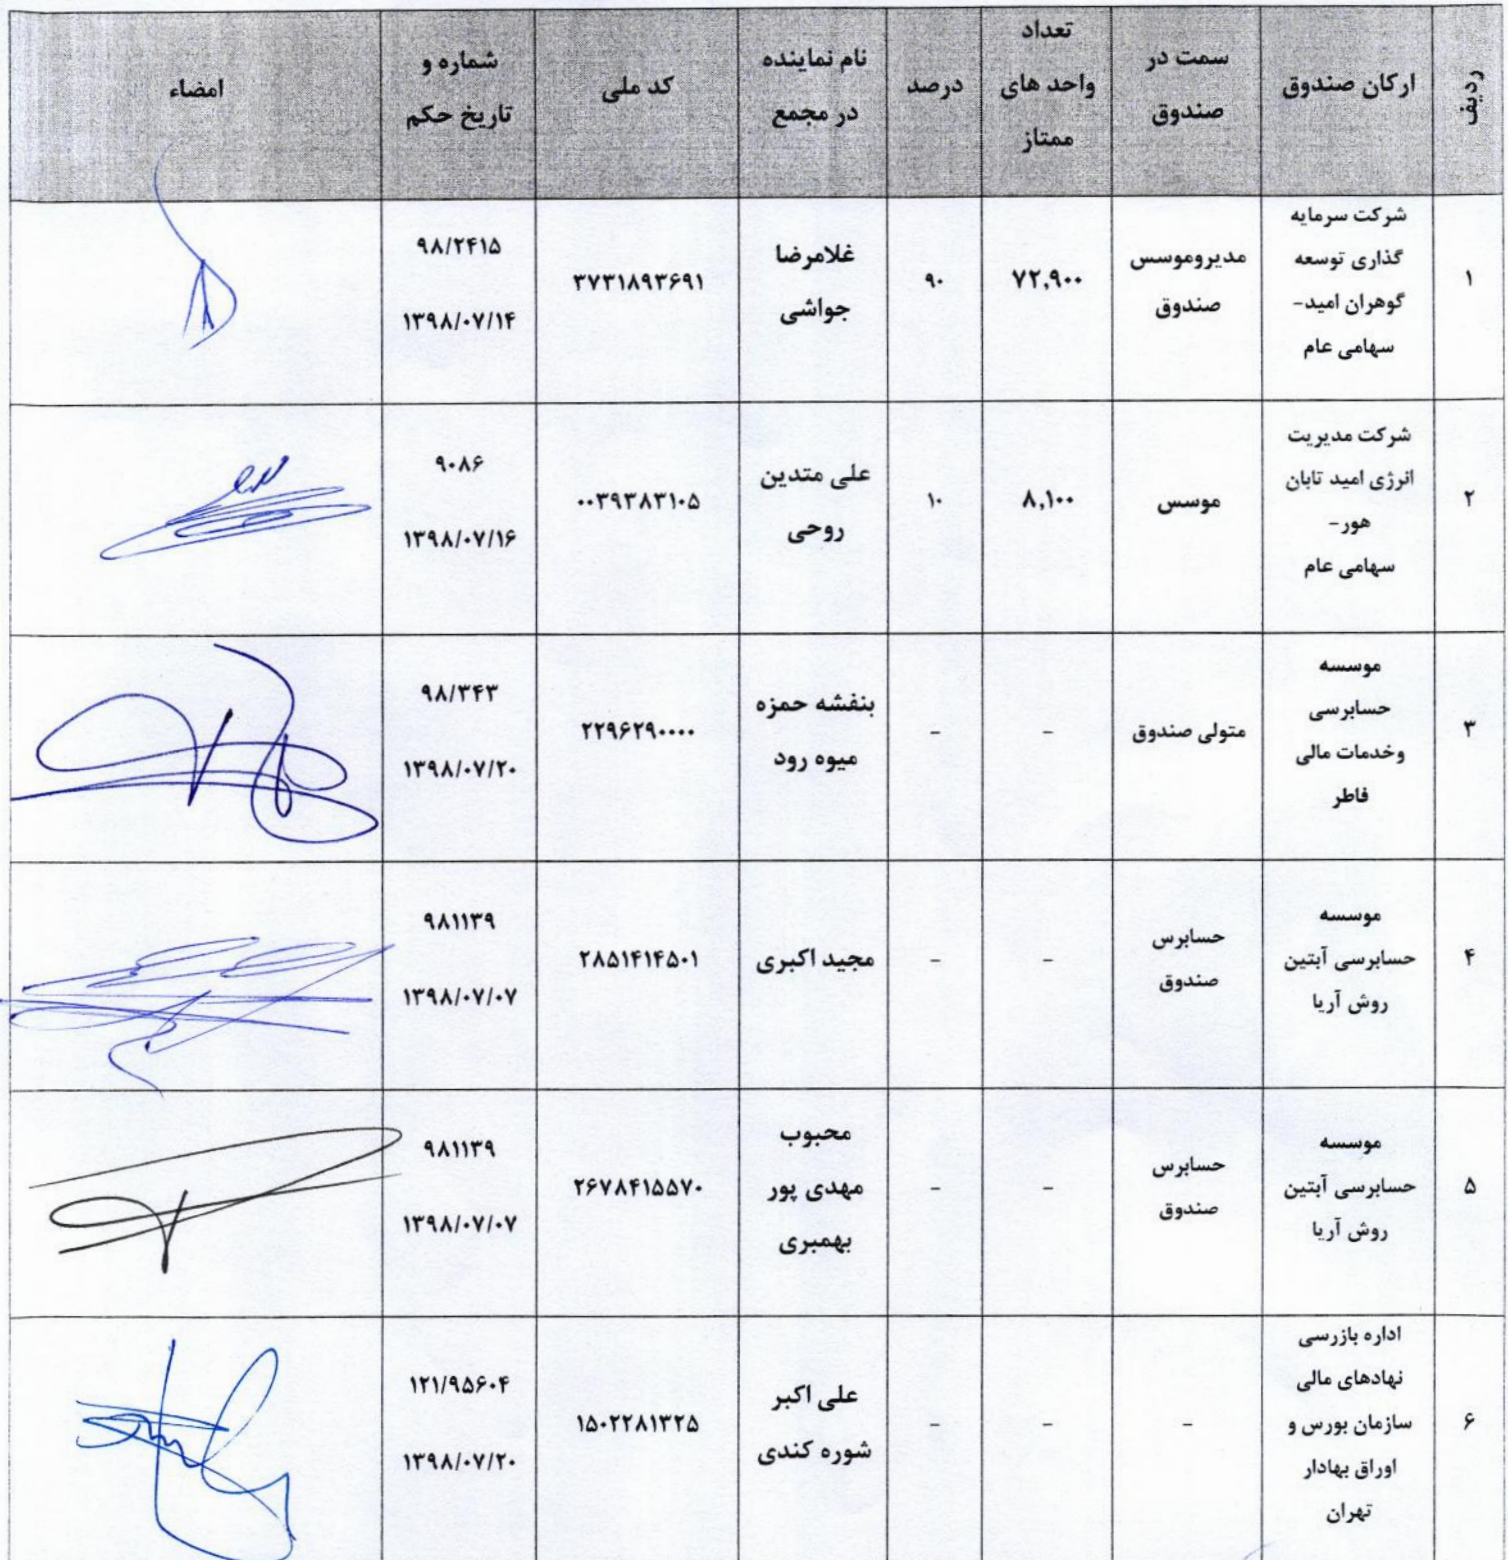 ردیف
ارکان صندوق
سمت در
صندوق
تعداد
واحد های
ممتاز
درصد
نام نماینده
در مجمع
کد ملی
شماره و
تاریخ حکم
امضاء
۱
شرکت سرمایه
گذاری توسعه
گوهران امید-
سهامی عام
مدیروموسس
صندوق
۷۲,۹۰۰
۹۰
غلامرضا
جواشی
۳۷۳۱۸۹۳۶۹۱
۹۸/۲۴۱۵
۱۳۹۸/۰۷/۱۴
۲
شرکت مدیریت
انرژی امید تابان
هور-
سهامی عام
موسس
۸,۱۰۰
۱۰
علی متدین
روحی
۰۰۳۹۳۸۳۱۰۵
۹۰۸۶
۱۳۹۸/۰۷/۱۶
۳
موسسه
حسابرسی
وخدمات مالی
فاطر
متولی صندوق
-
-
بنفشه حمزه
میوه رود
۲۲۹۶۲۹۰۰۰۰
۹۸/۳۴۳
۱۳۹۸/۰۷/۲۰
۴
موسسه
حسابرسی آبتین
روش آریا
حسابرس
صندوق
-
-
مجید اکبری
۲۸۵۱۴۱۴۵۰۱
۹۸۱۱۳۹
۱۳۹۸/۰۷/۰۷
۵
موسسه
حسابرسی آبتین
روش آریا
حسابرس
صندوق
-
-
محبوب
مهدی پور
بهمبری
۲۶۷۸۴۱۵۵۷۰
۹۸۱۱۳۹
۱۳۹۸/۰۷/۰۷
۶
اداره بازرسی
نهادهای مالی
سازمان بورس و
اوراق بهادار
تهران
-
-
-
علی اکبر
شوره کندی
۱۵۰۲۲۸۱۳۲۵
۱۲۱/۹۵۶۰۴
۱۳۹۸/۰۷/۲۰